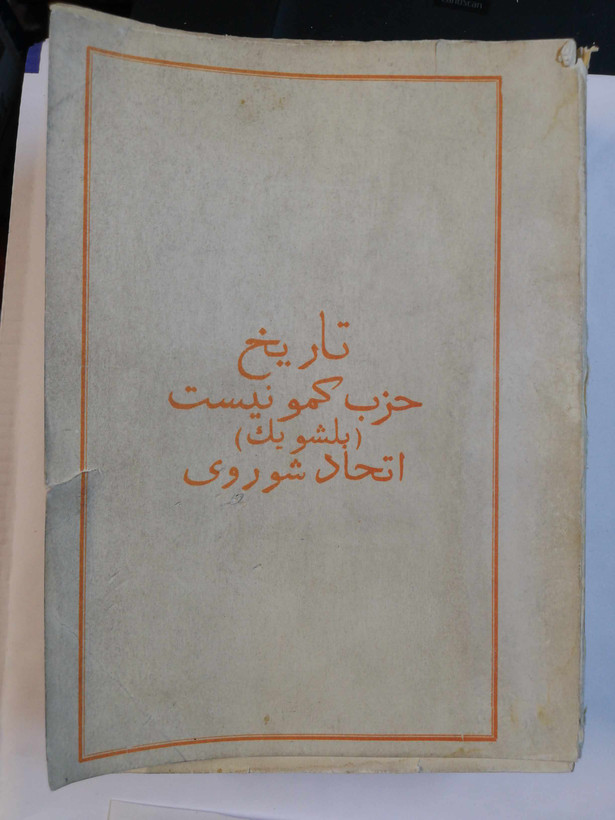 تاریخ
حزب کمونیست
(بلشویك)
اتحاد شوروی